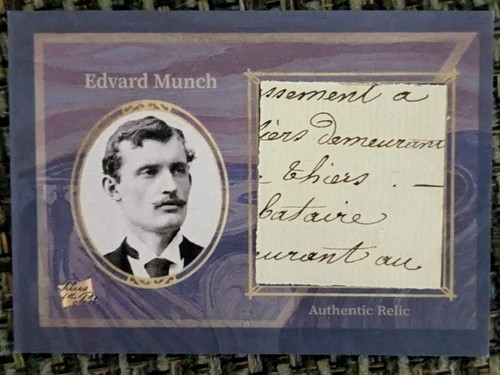 Edvard Munch
ssement a
iers demeurant
Thiers. —
bataire
urant au
Authentic Relic